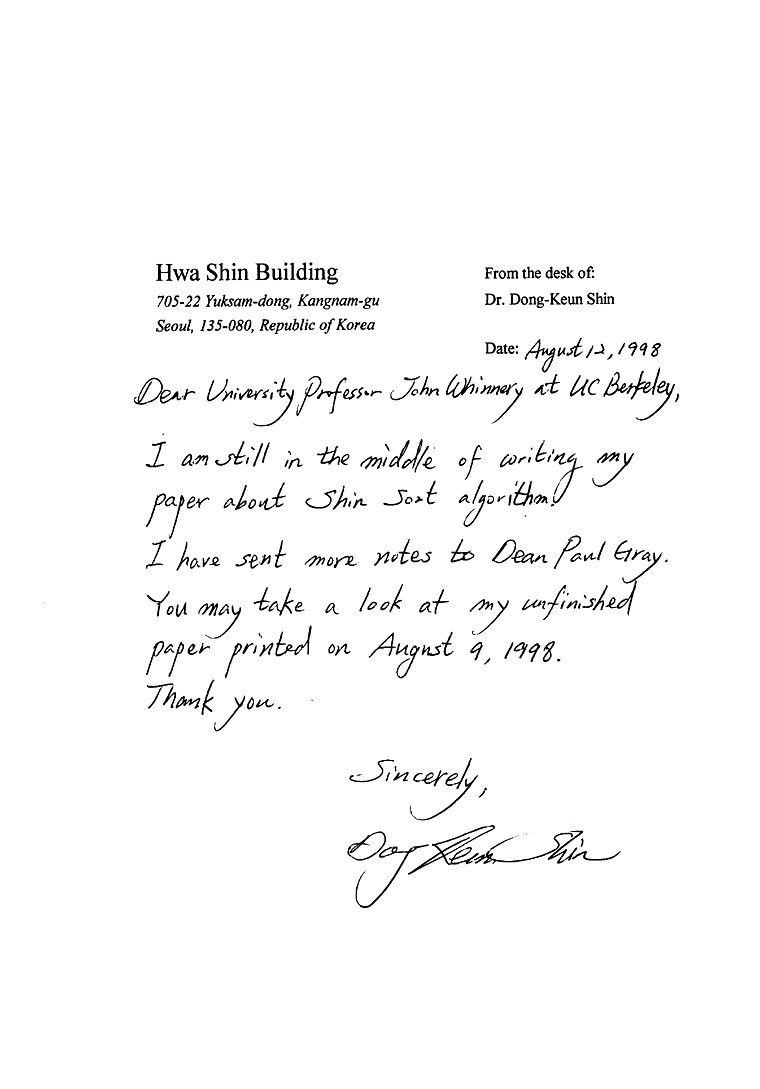 Hwa Shin Building
705-22 Yuksam-dong, Kangnam-gu
Seoul, 135-080, Republic of Korea
From the desk of:
Dr. Dong-Keun Shin
Date: August 12, 1998
Dear University Professor John Whinnery at UC Berkeley,
I am still in the middle of writing my
paper about Shin Sort algorithm!
I have sent more notes to Dean Paul Gray.
You may take a look at my unfinished
paper printed on August 9, 1998.
Thank you.
Sincerely,
Dong Keun Shin